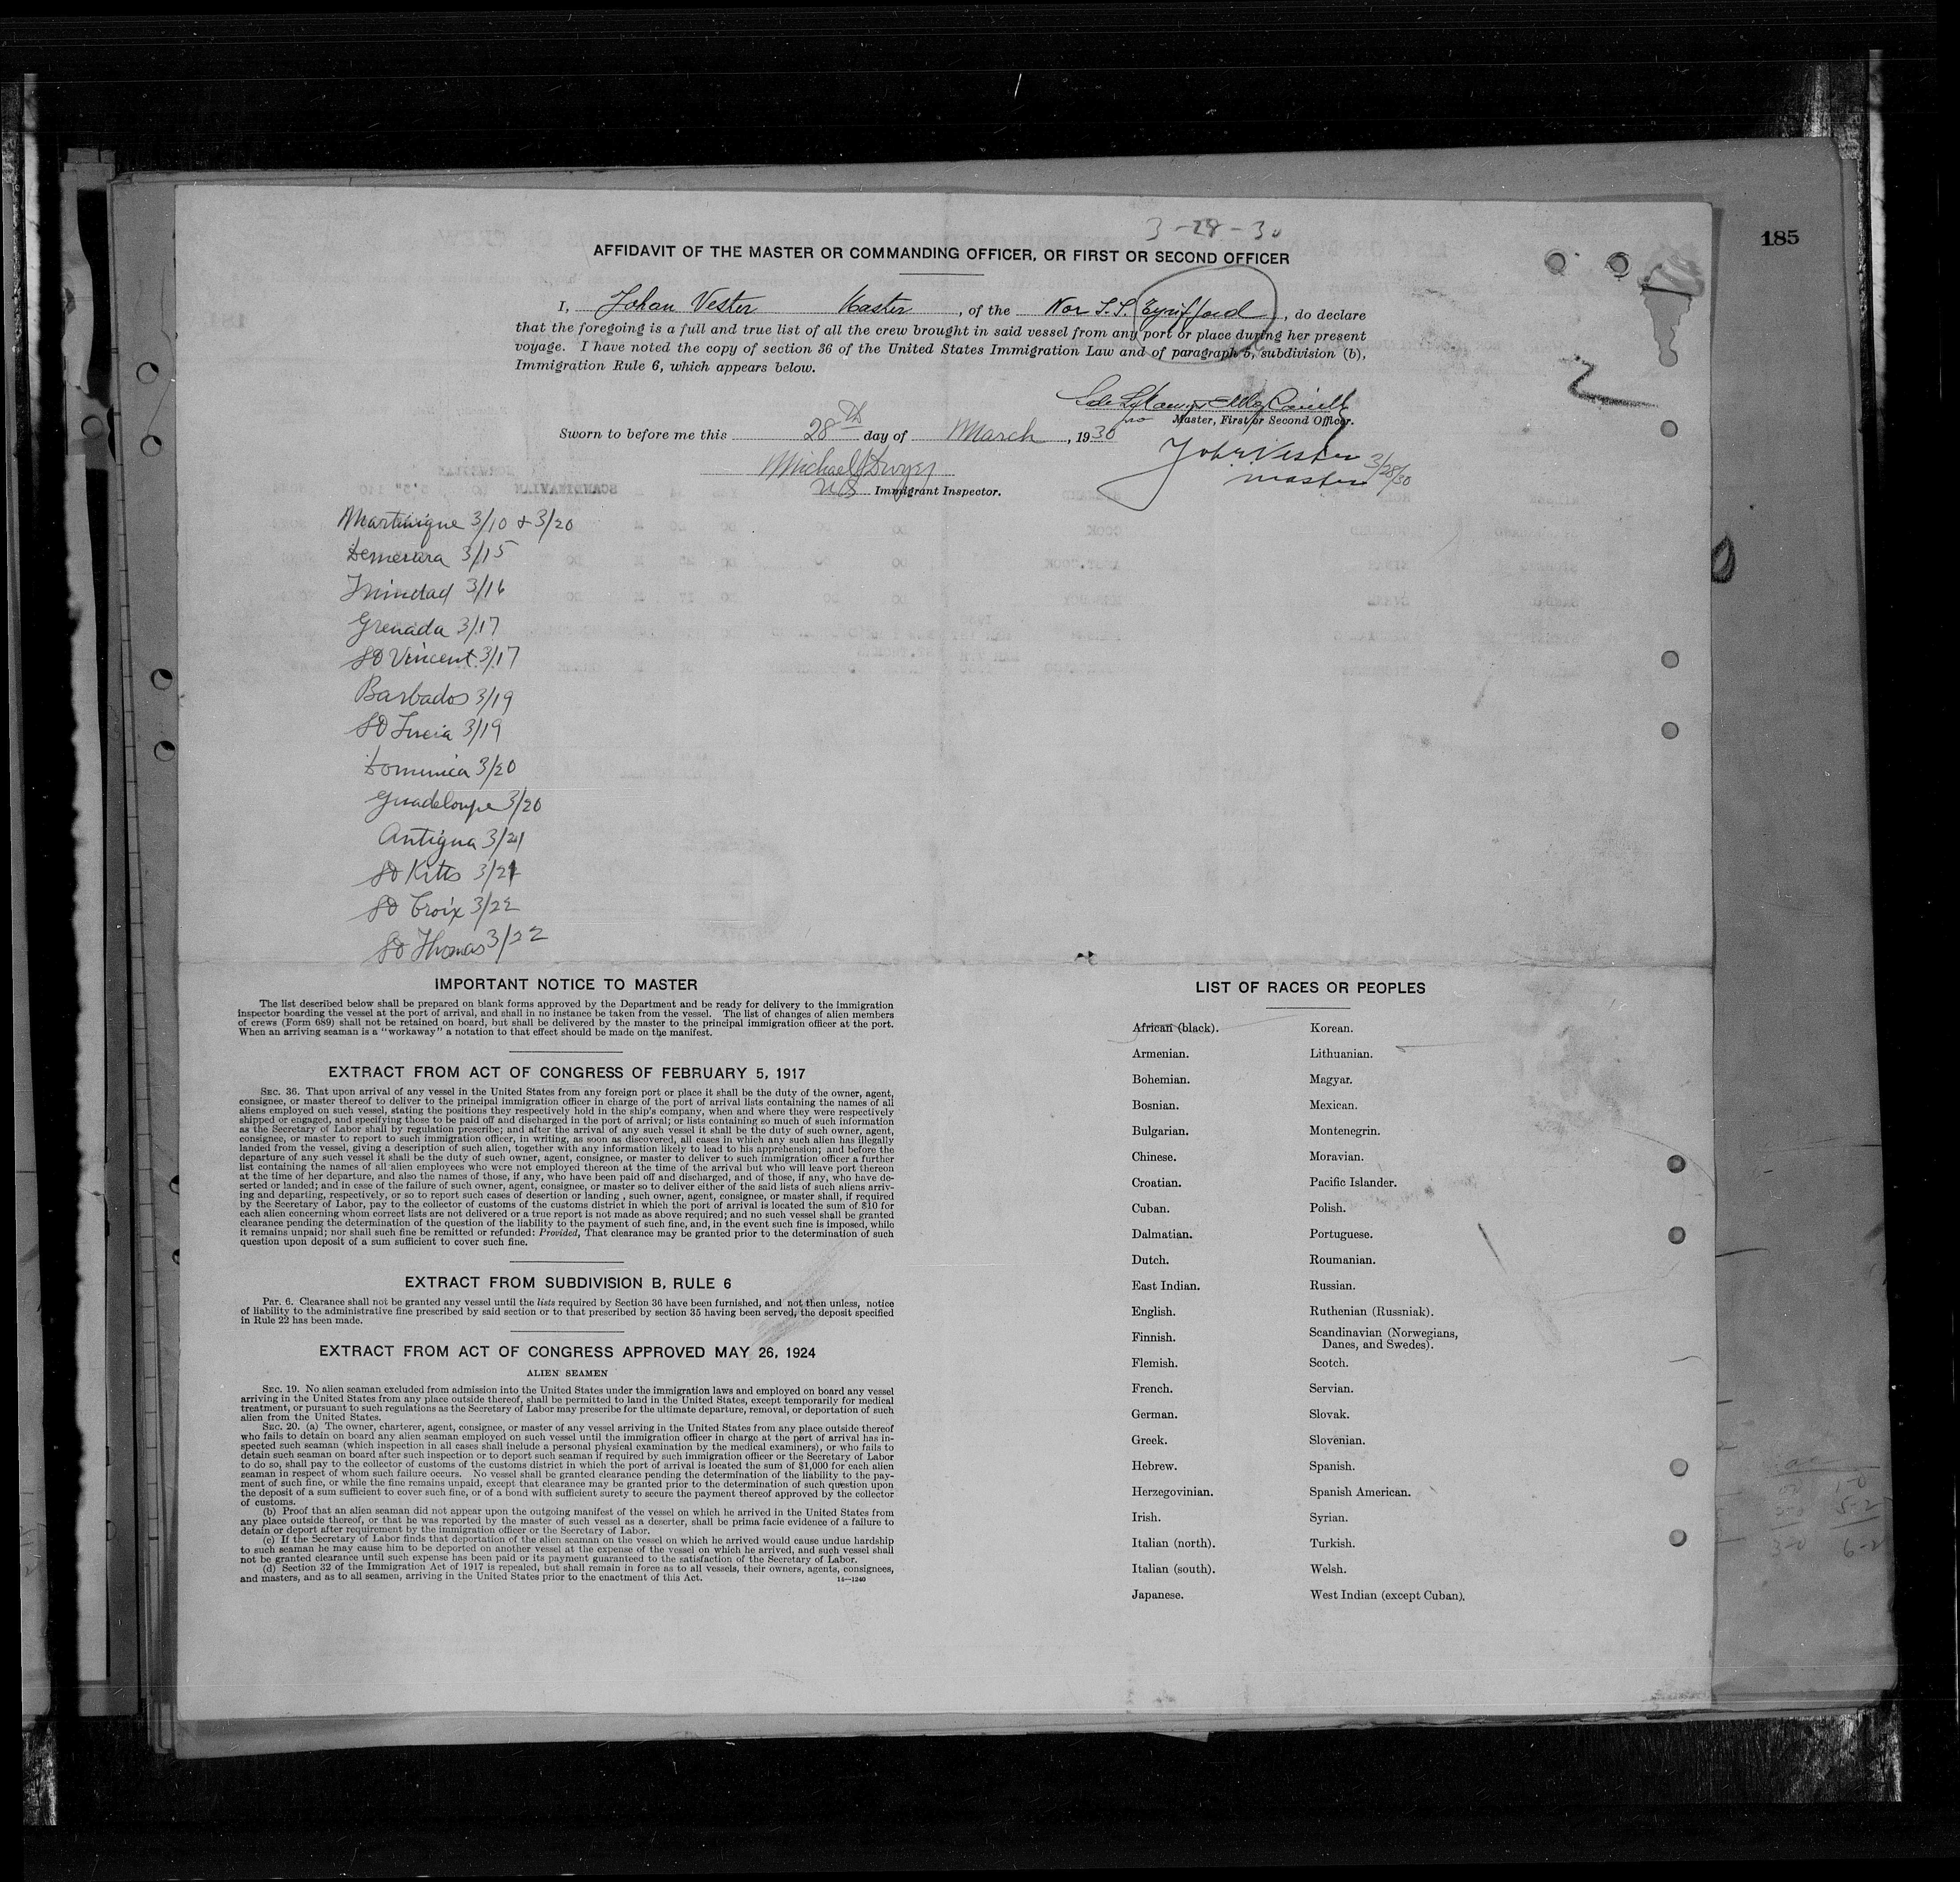 3-28-30
185
AFFIDAVIT OF THE MASTER OR COMMANDING OFFICER, OR FIRST OR SECOND OFFICER
I, Johan Vester Master, of the Nor S.S. , do declare
that the foregoing is a full and true list of all the crew brought in said vessel from any port or place during her present
voyage. I have noted the copy of section 36 of the United States Immigration Law and of paragraph 5, subdivision (b),
Immigration Rule 6, which appears below.
Master, First or Second Officer.
Sworn to before me this 28th day of March, 1930
Michael J Dwyer
US Immigrant Inspector.
John Vester 3/28/30
master
2
Martinique 3/10 & 3/20
Demerara 3/15
Trinidad 3/16
Grenada 3/17
St Vincent 3/17
Barbados 3/19
St Lucia 3/19
Dominica 3/20
Guadeloupe 3/20
Antigua 3/21
St Kitts 3/21
St Croix 3/22
St Thomas 3/22
IMPORTANT NOTICE TO MASTER
The list described below shall be prepared on blank forms approved by the Department and be ready for delivery to the immigration
inspector boarding the vessel at the port of arrival, and shall in no instance be taken from the vessel. The list of changes of alien members
of crews (Form 689) shall not be retained on board, but shall be delivered by the master to the principal immigration officer at the port.
When an arriving seaman is a "workaway" a notation to that effect should be made on the manifest.
EXTRACT FROM ACT OF CONGRESS OF FEBRUARY 5, 1917
SEC. 36. That upon arrival of any vessel in the United States from any foreign port or place it shall be the duty of the owner, agent,
consignee, or master thereof to deliver to the principal immigration officer in charge of the port of arrival lists containing the names of all
aliens employed on such vessel, stating the positions they respectively hold in the ship's company, when and where they were respectively
shipped or engaged, and specifying those to be paid off and discharged in the port of arrival; or lists containing so much of such information
as the Secretary of Labor shall by regulation prescribe; and after the arrival of any such vessel it shall be the duty of such owner, agent,
consignee, or master to report to such immigration officer, in writing, as soon as discovered, all cases in which any such alien has illegally
landed from the vessel, giving a description of such alien, together with any information likely to lead to his apprehension; and before the
departure of any such vessel it shall be the duty of such owner, agent, consignee, or master to deliver to such immigration officer a further
list containing the names of all alien employees who were not employed thereon at the time of the arrival but who will leave port thereon
at the time of her departure, and also the names of those, if any, who have been paid off and discharged, and of those, if any, who have de-
serted or landed; and in case of the failure of such owner, agent, consignee, or master so to deliver either of the said lists of such aliens arriv-
ing and departing, respectively, or so to report such cases of desertion or landing, such owner, agent, consignee, or master shall, if required
by the Secretary of Labor, pay to the collector of customs of the customs district in which the port of arrival is located the sum of $10 for
each alien concerning whom correct lists are not delivered or a true report is not made as above required; and no such vessel shall be granted
clearance pending the determination of the question of the liability to the payment of such fine, and, in the event such fine is imposed, while
it remains unpaid; nor shall such fine be remitted or refunded: Provided, That clearance may be granted prior to the determination of such
question upon deposit of a sum sufficient to cover such fine.
EXTRACT FROM SUBDIVISION B, RULE 6
PAR. 6. Clearance shall not be granted any vessel until the lists required by Section 36 have been furnished, and not then unless, notice
of liability to the administrative fine prescribed by said section or to that prescribed by section 35 having been served, the deposit specified
in Rule 22 has been made.
EXTRACT FROM ACT OF CONGRESS APPROVED MAY 26, 1924
ALIEN SEAMEN
SEC. 19. No alien seaman excluded from admission into the United States under the immigration laws and employed on board any vessel
arriving in the United States from any place outside thereof, shall be permitted to land in the United States, except temporarily for medical
treatment, or pursuant to such regulations as the Secretary of Labor may prescribe for the ultimate departure, removal, or deportation of such
alien from the United States.
SEC. 20. (a) The owner, charterer, agent, consignee, or master of any vessel arriving in the United States from any place outside thereof
who fails to detain on board any alien seaman employed on such vessel until the immigration officer in charge at the port of arrival has in-
spected such seaman (which inspection in all cases shall include a personal physical examination by the medical examiners), or who fails to
detain such seaman on board after such inspection or to deport such seaman if required by such immigration officer or the Secretary of Labor
to do so, shall pay to the collector of customs of the customs district in which the port of arrival is located the sum of $1,000 for each alien
seaman in respect of whom such failure occurs. No vessel shall be granted clearance pending the determination of the liability to the pay-
ment of such fine, or while the fine remains unpaid, except that clearance may be granted prior to the determination of such question upon
the deposit of a sum sufficient to cover such fine, or of a bond with sufficient surety to secure the payment thereof approved by the collector
of customs.
(b) Proof that an alien seaman did not appear upon the outgoing manifest of the vessel on which he arrived in the United States from
any place outside thereof, or that he was reported by the master of such vessel as a deserter, shall be prima facie evidence of a failure to
detain or deport after requirement by the immigration officer or the Secretary of Labor.
(c) If the Secretary of Labor finds that deportation of the alien seaman on the vessel on which he arrived would cause undue hardship
to such seaman he may cause him to be deported on another vessel at the expense of the vessel on which he arrived, and such vessel shall
not be granted clearance until such expense has been paid or its payment guaranteed to the satisfaction of the Secretary of Labor.
(d) Section 32 of the Immigration Act of 1917 is repealed, but shall remain in force as to all vessels, their owners, agents, consignees,
and masters, and as to all seamen, arriving in the United States prior to the enactment of this Act.
14—1240
LIST OF RACES OR PEOPLES
African (black). Korean.
Armenian. Lithuanian.
Bohemian. Magyar.
Bosnian. Mexican.
Bulgarian. Montenegrin.
Chinese. Moravian.
Croatian. Pacific Islander.
Cuban. Polish.
Dalmatian. Portuguese.
Dutch. Roumanian.
East Indian. Russian.
English. Ruthenian (Russniak).
Finnish. Scandinavian (Norwegians,
Danes, and Swedes).
Flemish. Scotch.
French. Servian.
German. Slovak.
Greek. Slovenian.
Hebrew. Spanish.
Herzegovinian. Spanish American.
Irish. Syrian.
Italian (north). Turkish.
Italian (south). Welsh.
Japanese. West Indian (except Cuban).